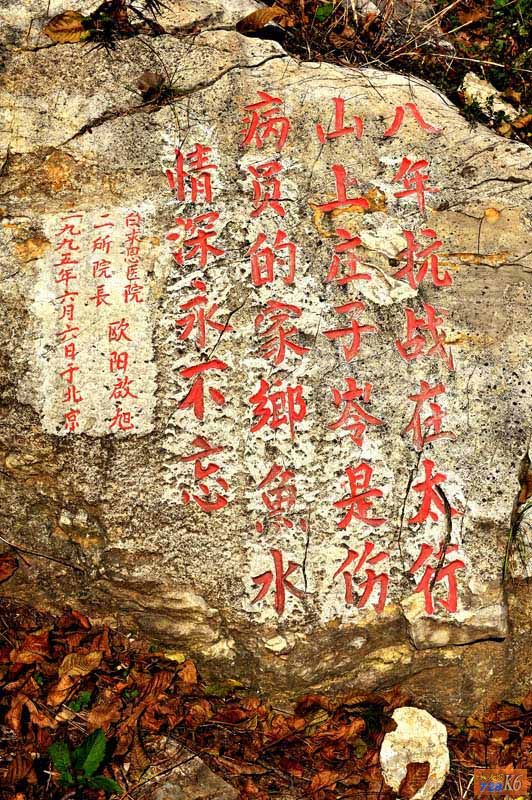 八年抗战在太行
山上庄子岺是伤
病员的家鄉魚水
情深永不忘
白求恩医院
二所院長 欧阳啟旭
一九九五年六月六日于北京